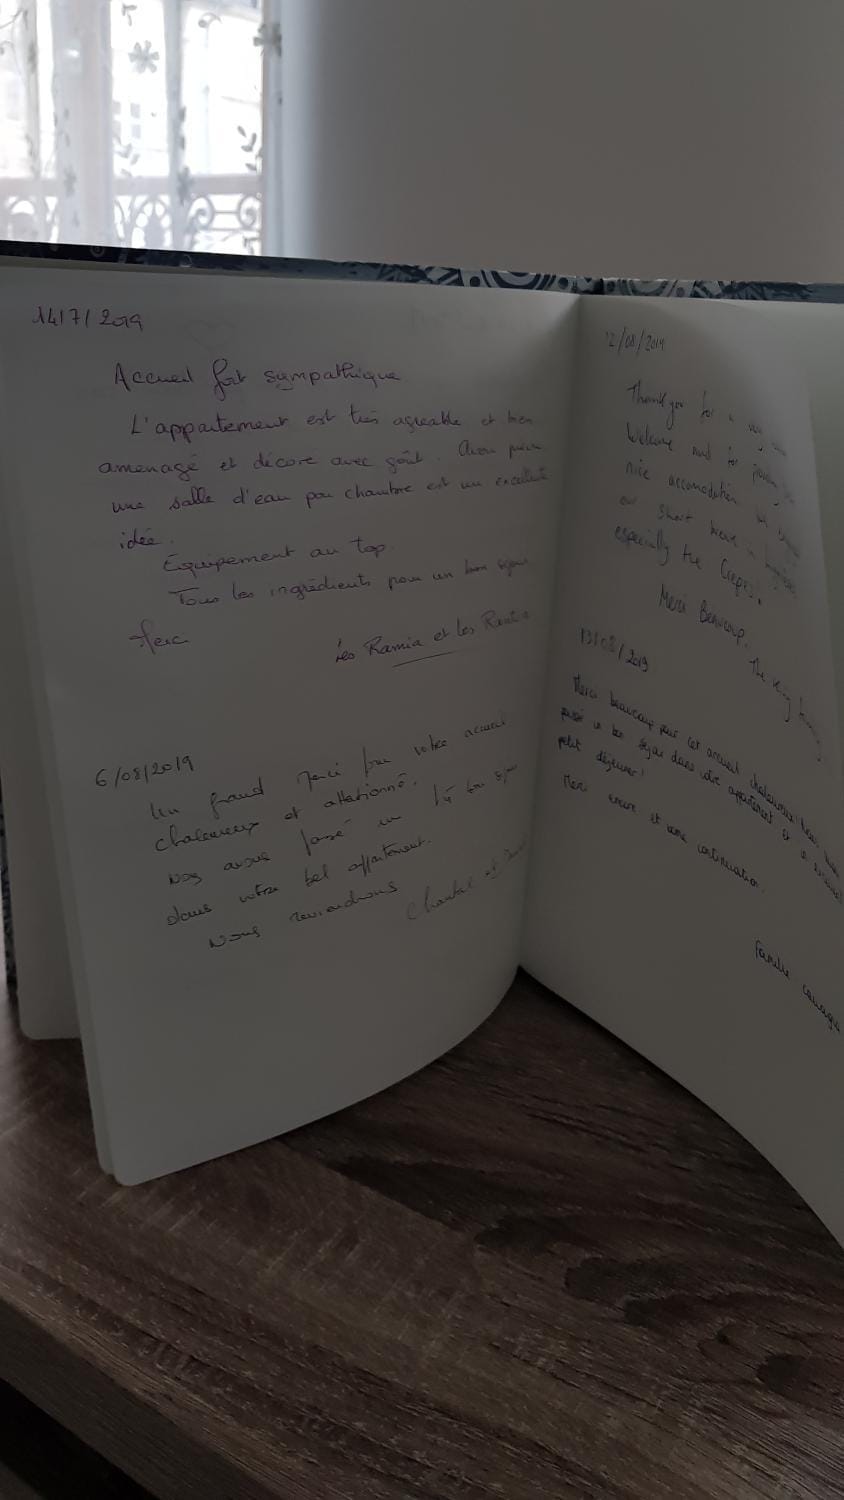 14/7/2019
Accueil fort sympathique
L'appartement est très agréable et bien
aménagé et décoré avec goût. Avoir prévu
une salle d'eau par chambre est une excellente
idée.
Équipement au top.
Tous les ingrédients pour un bon séjour
Merci
Les Ramia et les
6/08/2019
Un grand merci pour votre accueil
chaleureux et attentionné.
Nous avons passé un très bon séjour
dans votre bel appartement.
Nous reviendrons
Chantal et
12/08/2019
Thank you for a very
Welcome and for
nice accomodation
our short break in
especially the Crepes!
Merci Beaucoup. The
13/08/2019
Merci beaucoup pour cet accueil chaleureux. Nous avons
passé un bon séjour dans votre appartement et
petit déjeuner!
Merci encore et bonne continuation.
Famille